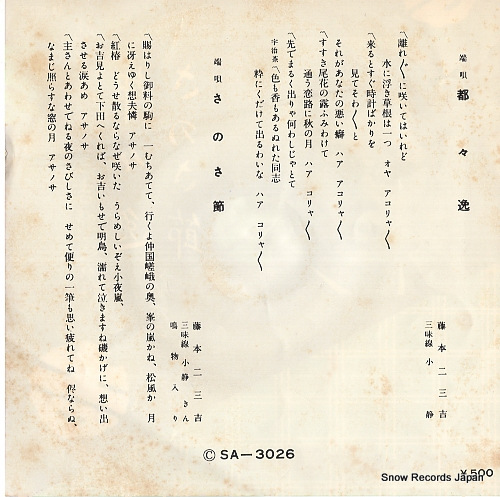 端唄 都々逸
藤本二三吉
三味線 小静
〽離れ〳〵に咲いてはいれど
水に浮き草根は一つ オヤ アコリャ〳〵
〽来るとすぐ時計ばかりを
見てそわ〳〵と
それがあなたの悪い癖 ハア アコリャ〳〵
〽すすき尾花の露ふみわけて
通う恋路に秋の月 ハア コリャ〳〵
〽先でまるく出りゃ何わしじゃとて
宇治茶〽色も香もあるぬれた同志
粋にくだけて出るわいな ハア コリャ〳〵
端唄 さのさ節
藤本二三吉
三味線 小静 きん
鳴物入り
〽賜はりし御料の駒に 一むちあてて、行くよ仲国嵯峨の奥、峯の嵐かね、松風か 月
に冴えゆく想夫憐 アサノサ
〽紅椿 どうせ散るならなぜ咲いた うらめしいぞえ小夜嵐、
〽お吉見よとて下田へくれば、お吉いもせで明烏、濡れて泣きますね磯かげに、想い出
させる涙あめ アサノサ
〽主さんとあわせてねる夜のさびしさに せめて便りの一筆も思い疲れてね 儘ならぬ、
なまじ照らすな窓の月 アサノサ
Ⓒ SA—3026
¥500
Snow Records Japan